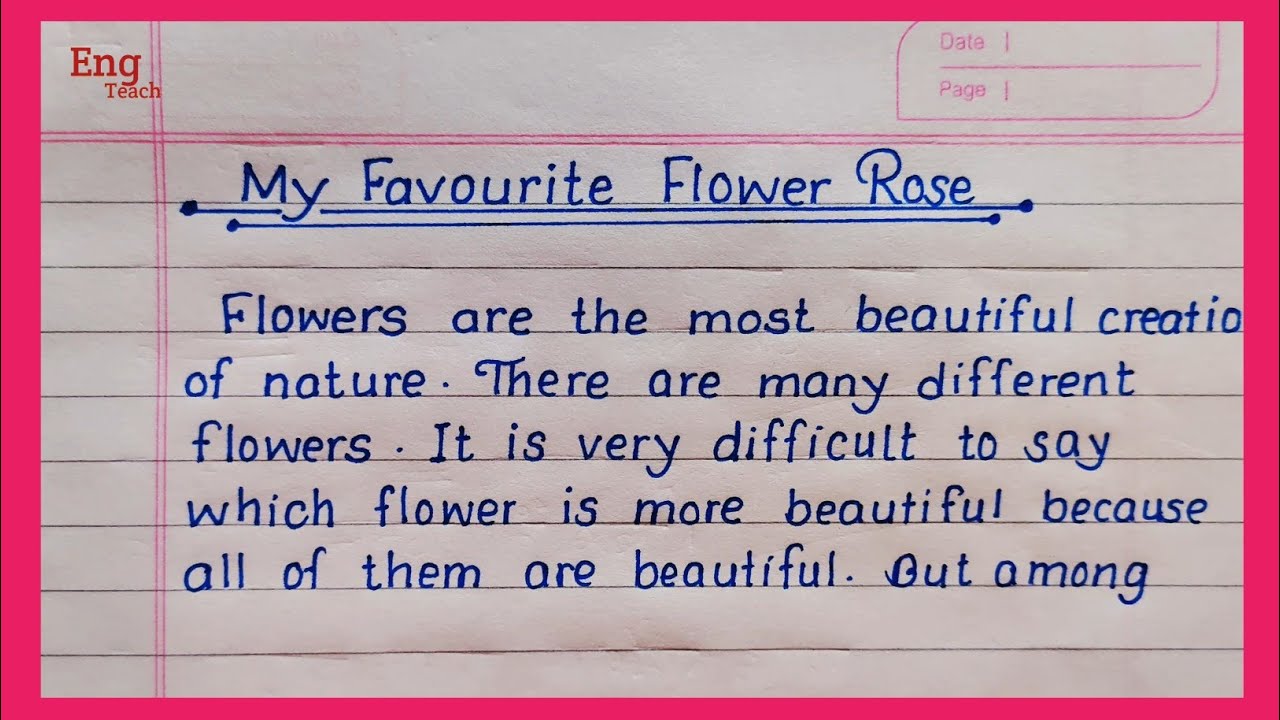 Eng
Teach
Date
Page
My Favourite Flower Rose
Flowers are the most beautiful creatio
of nature. There are many different
flowers. It is very difficult to say
which flower is more beautiful because
all of them are beautiful. But among